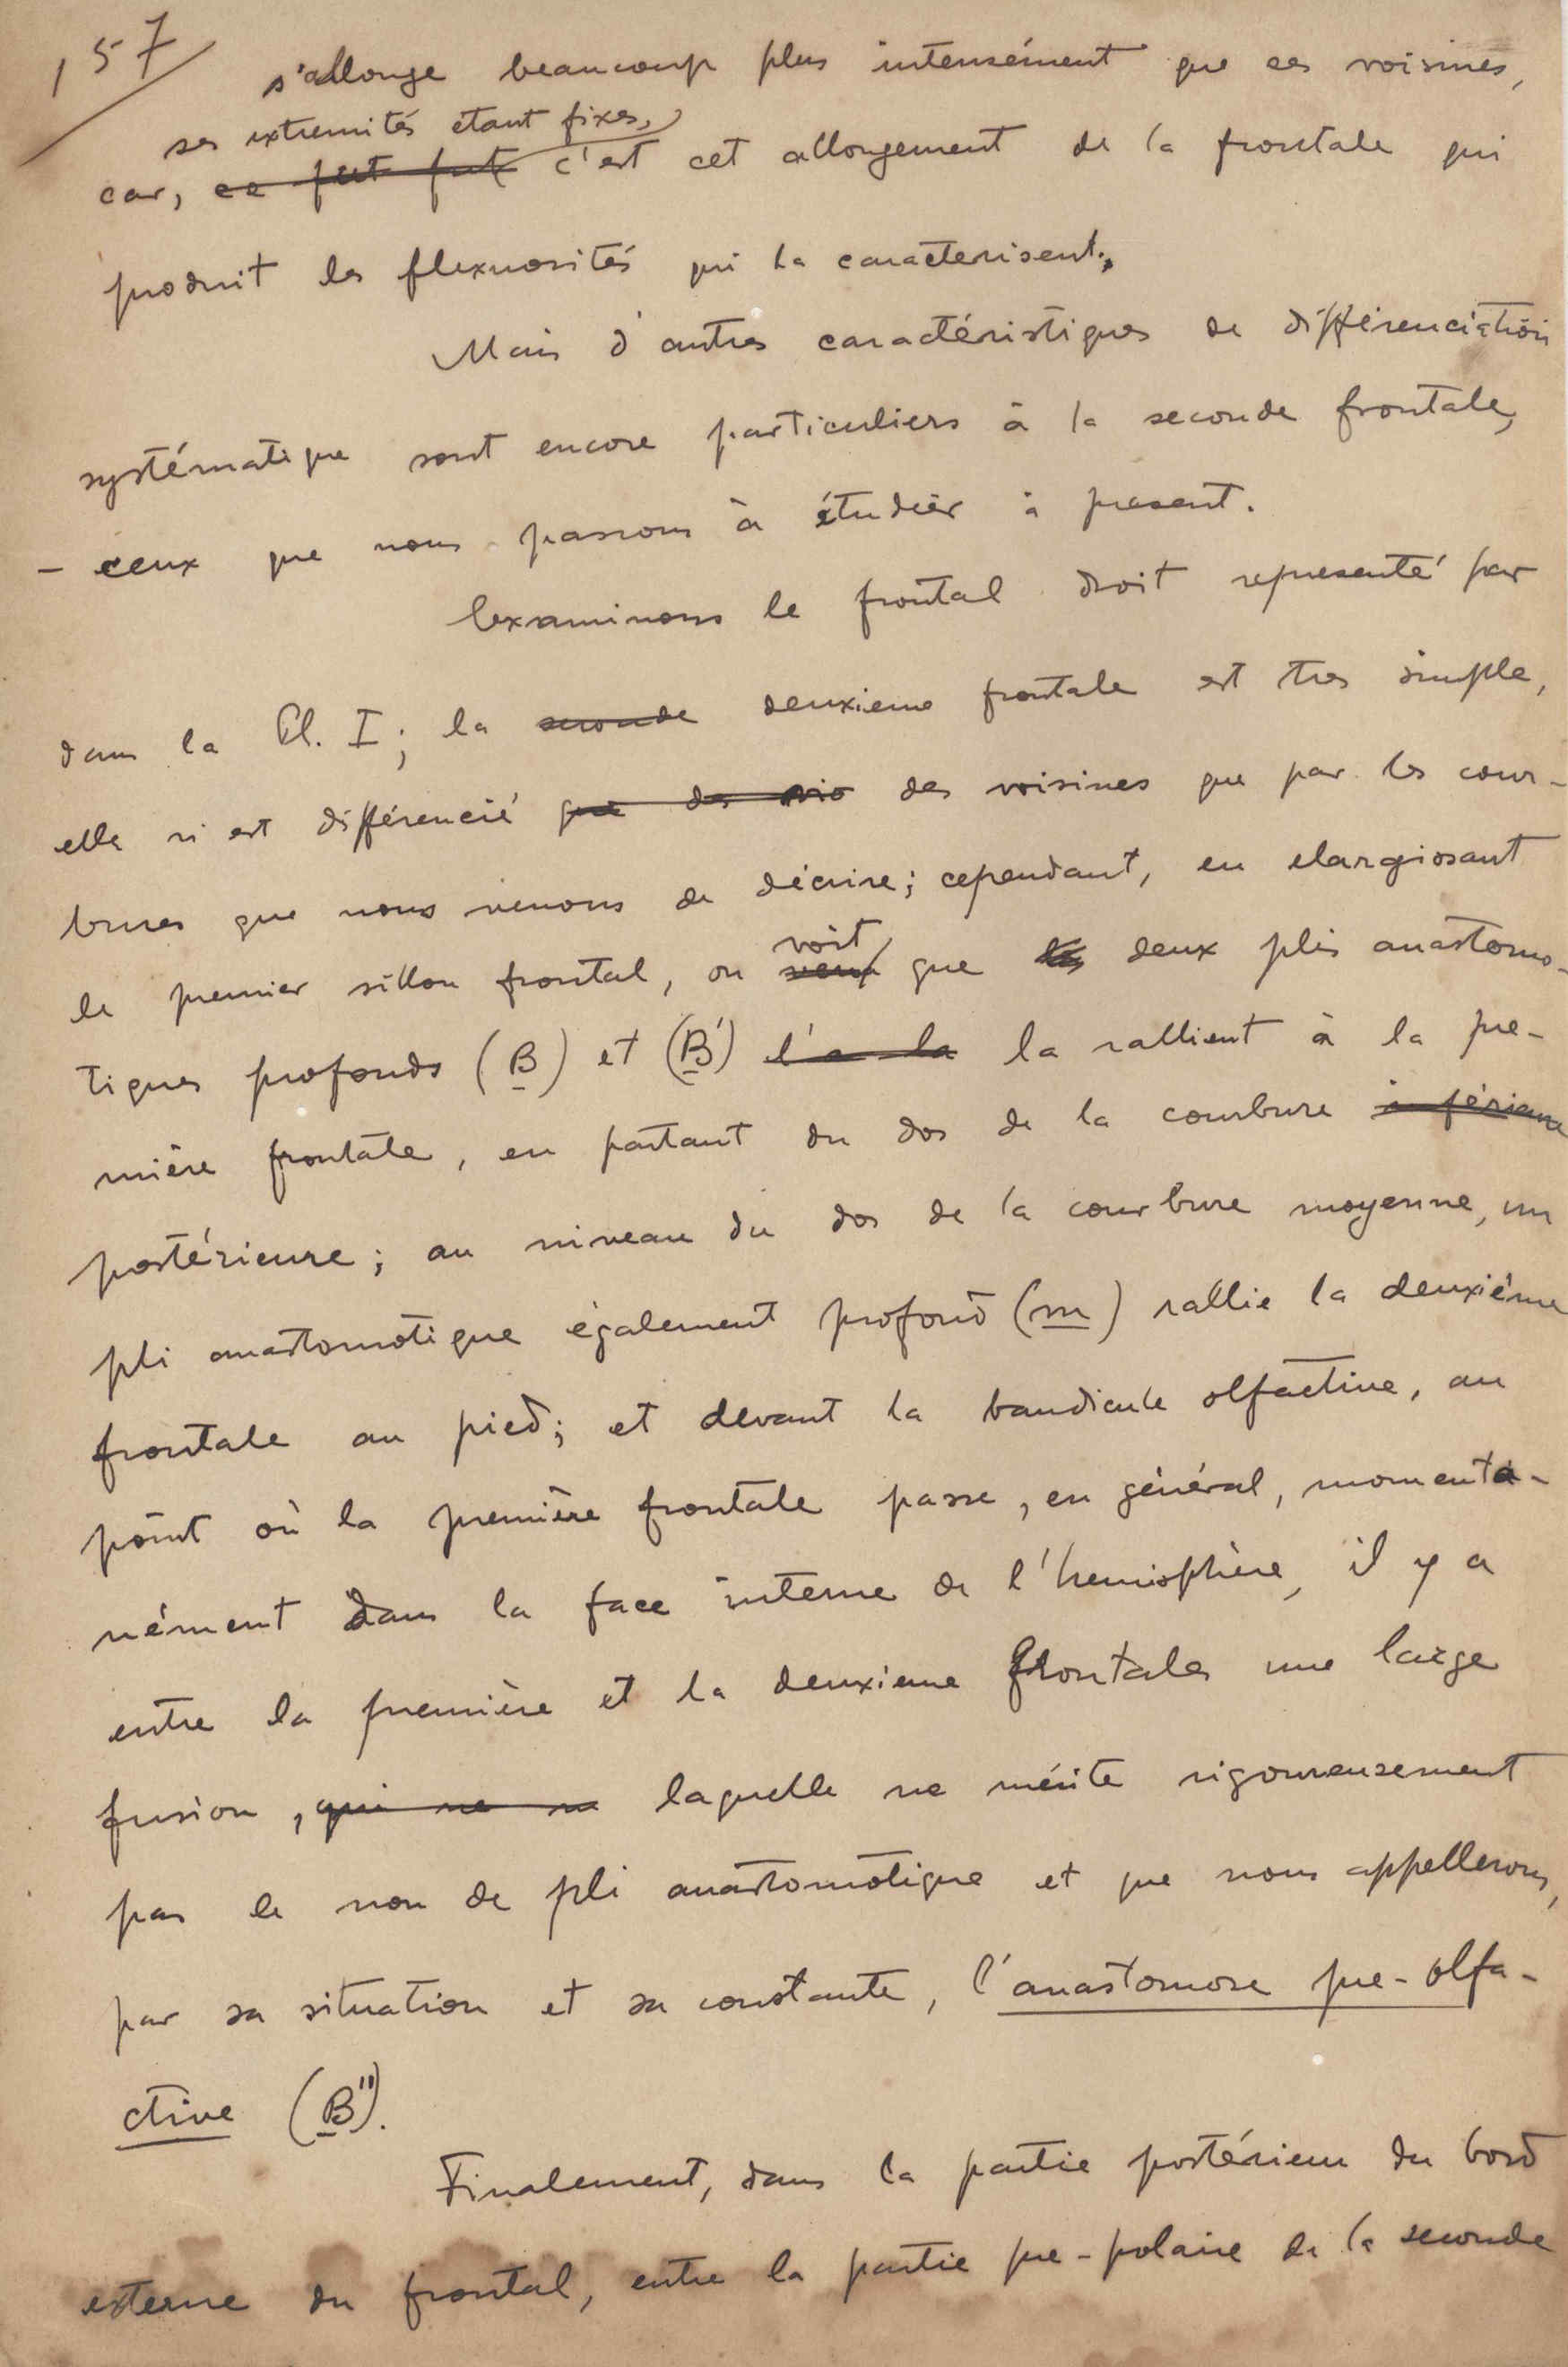 157
s'allonge beaucoup plus intensément que ses voisines,
ses extremités étant fixes,
car, ce fut fut c'est cet allongement de la frontale qui
produit les flexuosités qui la caracterisent.
Mais d'autres caractéristiques de différenciation
systématique sont encore particuliers à la seconde frontale,
- ceux que nous passons à étudier à present.
Examinons le frontal droit representé par
dans la Pl. I; la seconde deuxieme frontale est tres simple,
elle n'est différencié que des vio des voisines que par les cour-
bures que nous venons de décrire; cependant, en elargissant
voit
le premier sillon frontal, on veut que les deux plis anastomo-
tiques profonds (B) et (B') l'a la la rallient à la pre-
mière frontale, en partant du dos de la courbure inférieure
postérieure; au niveau du dos de la courbure moyenne, un
pli anastomotique également profond (m) rallie la deuxième
frontale au pied; et devant la bandicule olfactive, au
point où la première frontale passe, en général, momenta-
nément dans la face interne de l'hemisphère, il y a
entre la première et la deuxieme frontales une large
fusion, qui ne m laquelle ne mérite rigoureusement
pas le non de pli anastomotique et que nous appellerons,
par sa situation et sa constante, l'anastomose pre-olfa-
ctive (B'').
Finalement, dans la partie postérieur du bord
externe du frontal, entre la partie pre-polaire de la seconde